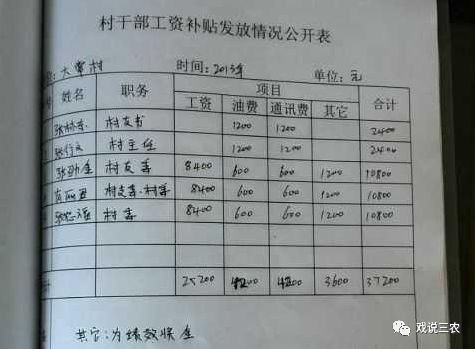 村干部工资补贴发放情况公开表
大 村 时间：2015年 单位：元
姓名 职务 项目 合计
工资 油费 通讯费 其它
张 村支书 1200 1200 2400
张 村主任 1200 1200 2400
张 金 村支委 8400 600 600 1200 10800
村支委·村委 8400 600 600 1200 10800
张 村委 8400 600 600 1200 10800
25200 4200 4200 3600 37200
其它：为绩效奖金
戏说三农